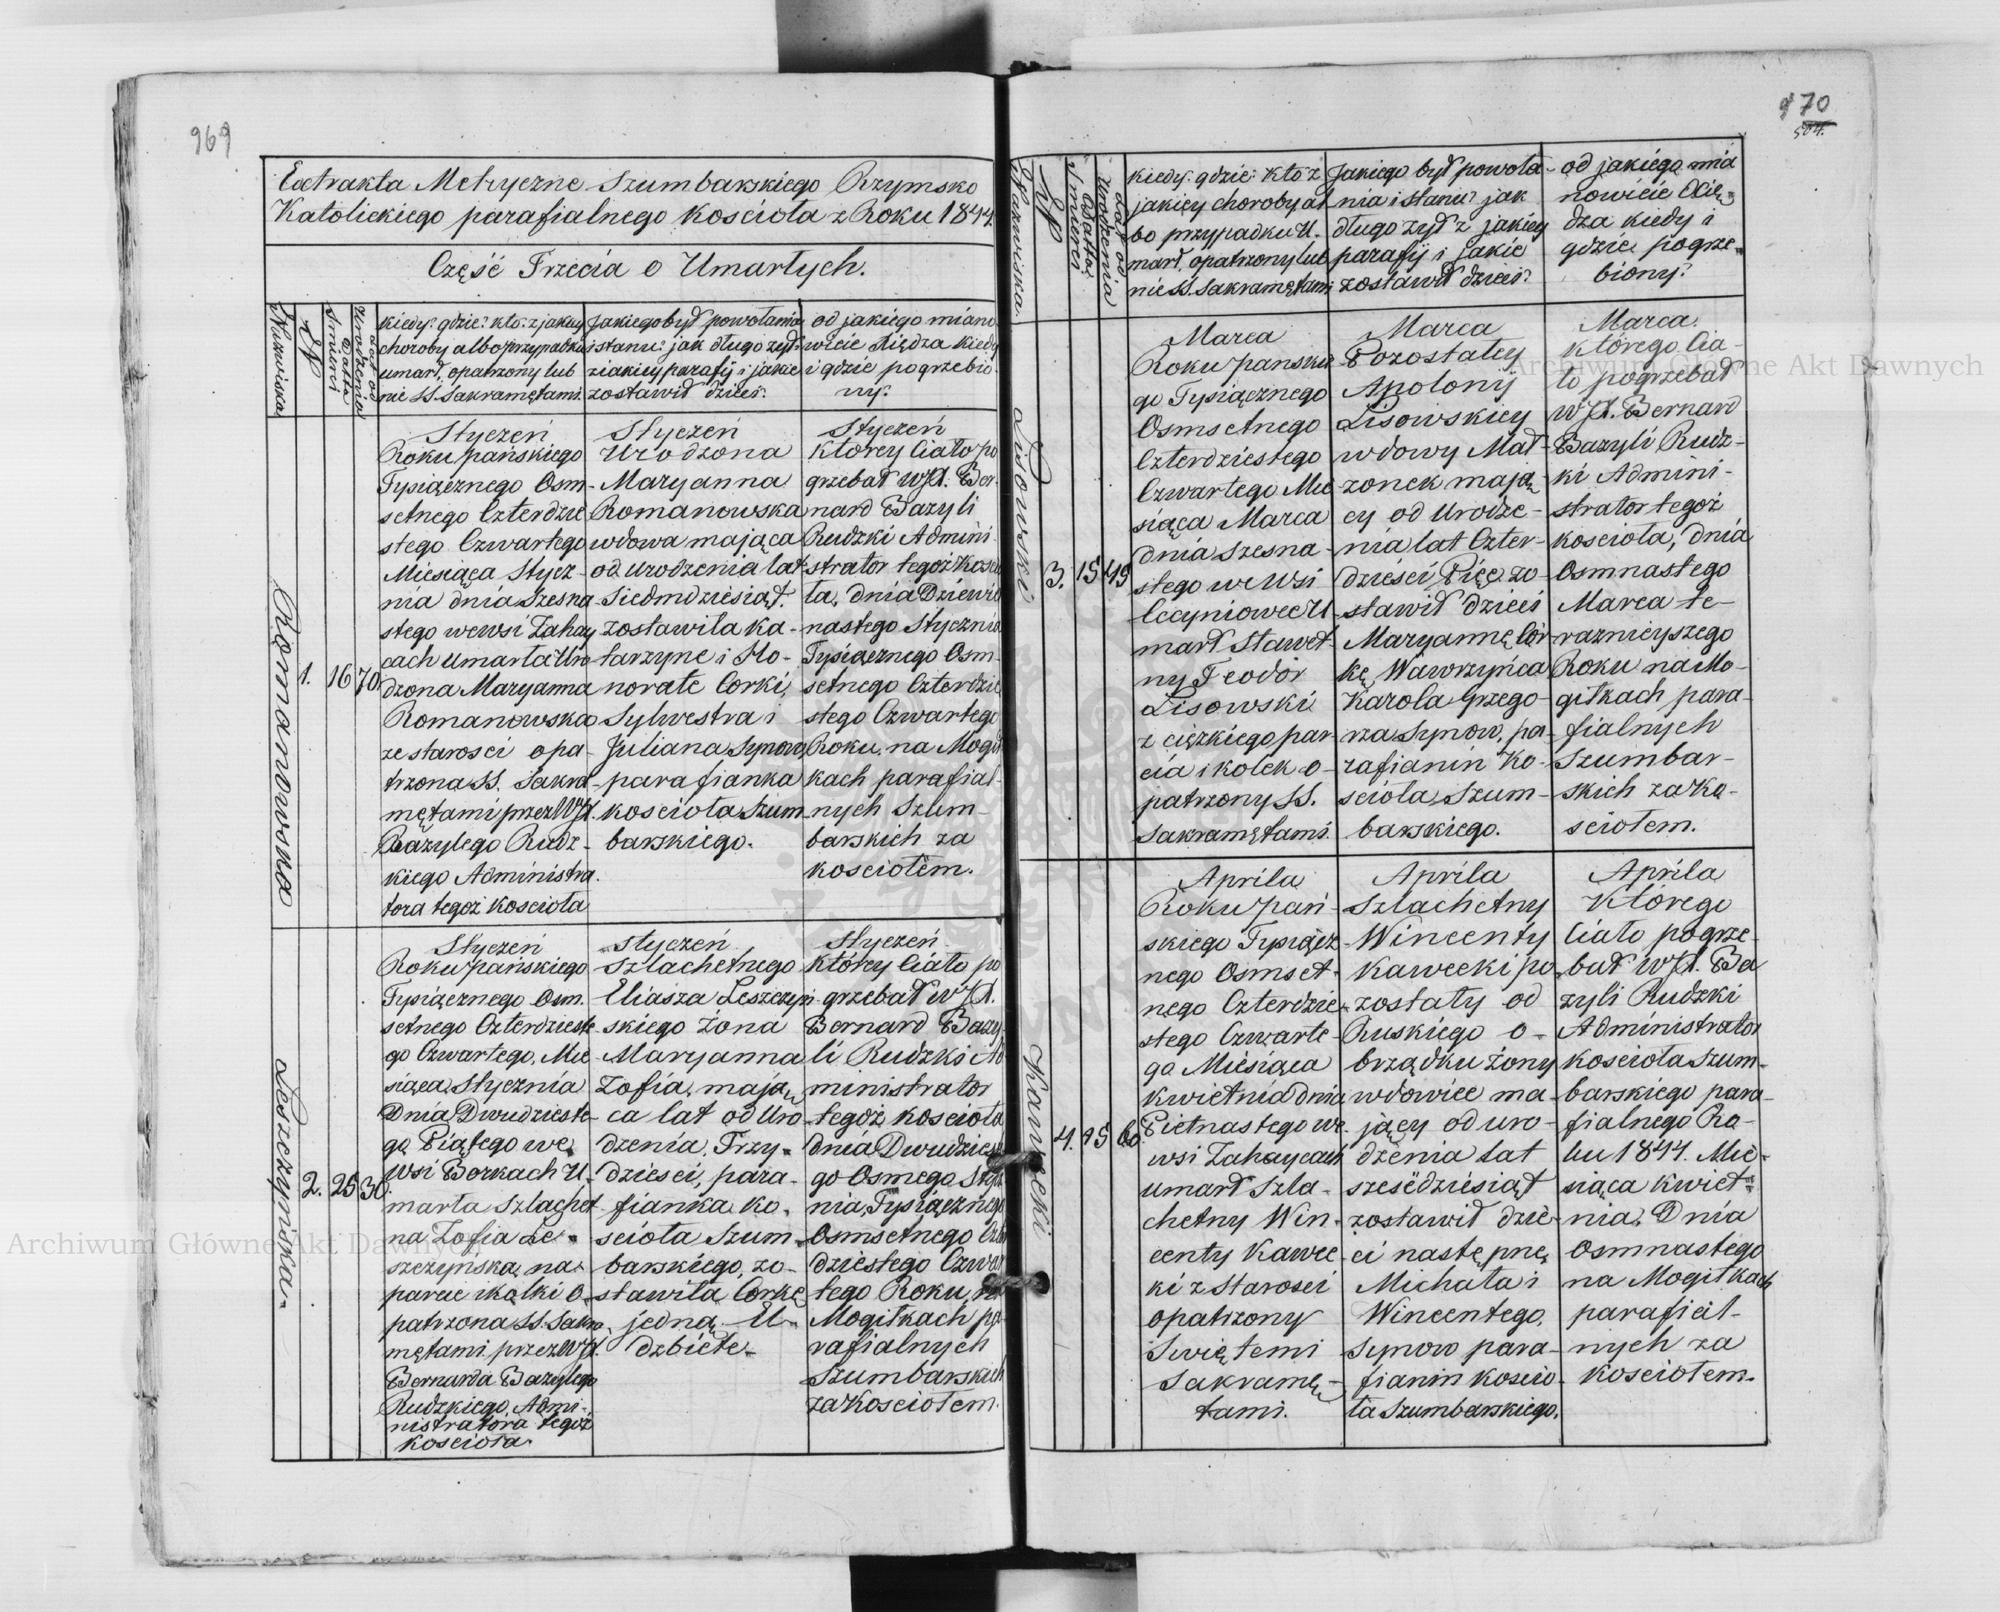 969
Extrakta Metryczne Szumbarskiego Rzymsko
Katolickiego parafialnego kościoła z Roku 1844.
Część Trzecia o Umarłych.
Nazwiska
N
Smierci
Datta
Urodzenia
Lat od
kiedy? gdzie? kto? z jakiey
choroby albo przypadku
umarł, opatrzony lub
nie SS. Sakramętami.
Jakiego był powołania
i stanu? jak długo żył?
z jakiey parafij i jakie
zostawił dzieci?
od jakiego miano-
wicie Xiędza kiedy
i gdzie pogrzebio-
ny?
Romanowska
1.
16
70.
Styczeń
Roku pańskiego
Tysiącznego Osm-
setnego Czterdzie
stego Czwartego
Miesiąca Stycz-
nia dnia szesna
stego wewsi Zahay
cach umarła Uro
dzona Maryanna
Romanowska
ze starosci opa-
trzona SS. Sakra-
mętami przez WJX.
Bazylego Rudz-
kiego Administra.
tora tegoż Kościoła
Styczeń
Urodzona
Maryanna
Romanowska
wdowa mająca
od urodzenia lat
Siedmdziesiąt.
zostawiła Ka-
tarzynę i Ho-
noratę Corki,
Sylwestra i
Juliana Synow,
parafianka
kościoła Szum-
barskiego.
Styczeń
Którey Ciało po
grzebał WJX. Ber-
nard Bazyli
Rudzki Admini-
strator tegoż Kościo
ła, dnia Dziewię
nastego Stycznia
Tysiącznego Osm-
setnego Czterdzie
stego Czwartego
Roku, na Mogił
kach parafial-
nych Szum-
barskich za
kosciołem.
Leszczyńska.
2.
25
30.
Styczeń
Roku pańskiego
Tysiącznego Osm-
setnego Czterdzieste
go Czwartego, Mie
siąca Stycznia
Dnia Dwudzieste-
go Piątego we
wsi Borkach U-
marła Szlachet
na Zofia Le-
szczyńska, na
parcie i kolki o-
patrzona SS. Sakra
mętami przez WJX.
Bernarda Bazylego
Rudzkiego, Admi-
nistratora tegoż
kościoła.
Styczeń
Szlachetnego
Eliasza Leszczyń-
skiego żona
Maryanna
Zofia, mają-
ca lat od Uro-
dzenia, Trzy-
dzieści, para-
fianka ko-
ścioła Szum-
barskiego, zo-
stawiła Corkę
jedną El-
dzbiete.
Styczeń
Którey Ciało po
grzebał WJX.
Bernard Bazy-
li Rudzki Ad
ministrator
tegoż kościoła
dnia Dwudzieste
go Osmego Stycz
nia, Tysiącznego
Osmsetnego Czter
dziestego Czwar
tego Roku, na
Mogiłkach pa-
rafialnych
Szumbarskich
za Kosciołem.
970
504.
Nazwiska.
N
Smierci
Datta
Urodzenia
Lat od
kiedy? gdzie? kto? z
jakiey choroby al
bo przypadku U-
marł, opatrzony lub
nie SS. Sakramętami
Jakiego był powoła-
nia i stanu? jak
długo żył z jakiey
parafij i jakie
zostawił dzieci?
od jakiego mia
nowicie Xię-
dza kiedy i
gdzie pogrze-
biony?
Lisowski
3.
15
45
Marca
Roku pańskie
go Tysiącznego
Osmsetnego
Czterdziestego
Czwartego Mie
siąca Marca
dnia szesna-
stego we wsi
Cecyniowce U
marł Sławet-
ny Teodor
Lisowski
z ciężkiego par-
cia i kolek o-
patrzony SS.
Sakramętami.
Marca
Pozostały
Apolonij
Lisowskiey
wdowy Mał-
żonek mają-
cy od Urodze-
nia lat Czter-
dzieści Pięć zo-
stawił dzieci
Maryannę Cór
kę, Wawrzyńca
Karola Grzego-
rza Synow, pa-
rafianin Ko-
ścioła Szum-
barskiego.
Marca
którego Cia-
ło pogrzebał
WJX. Bernard
Bazyli Rudz-
ki Admini-
strator tegoż
kościoła, dnia
Osmnastego
Marca te-
raznieyszego
Roku na Mo-
giłkach para-
fialnych
Szumbar-
skich za Ko-
sciołem.
Kawecki
4.
15
60.
Aprila
Roku pań-
skiego Tysiącz-
nego Osmset-
nego Czterdzie-
stego Czwarte-
go Miesiąca
Kwietnia dnia
Pietnastego we
wsi Zahaycach
umarł Szla-
chetny Win-
centy Kawec
ki z Starosci
opatrzony
Swiętemi
Sakramę-
tami.
Aprila
Szlachetny
Wincenty
Kawecki po
zostały od
Ruskiego o-
brządku żony
wdowiec ma-
jący od uro-
dzenia lat
sześćdziesiąt
zostawił dzie-
ci następne
Michała i
Wincentego,
Synow para-
fianin koscio-
ła Szumbarskiego.
Aprila
Którego
Ciało pogrze-
bał WJX. Ba
zyli Rudzki
Administrator
kościoła Szum-
barskiego para-
fialnego Ro-
ku 1844. Mie-
siąca Kwiet-
nia, Dnia
Osmnastego
na Mogiłkach
parafial-
nych za
Kosciołem.
Archiwum Główne Akt Dawnych
Archiwum Główne Akt Dawnych